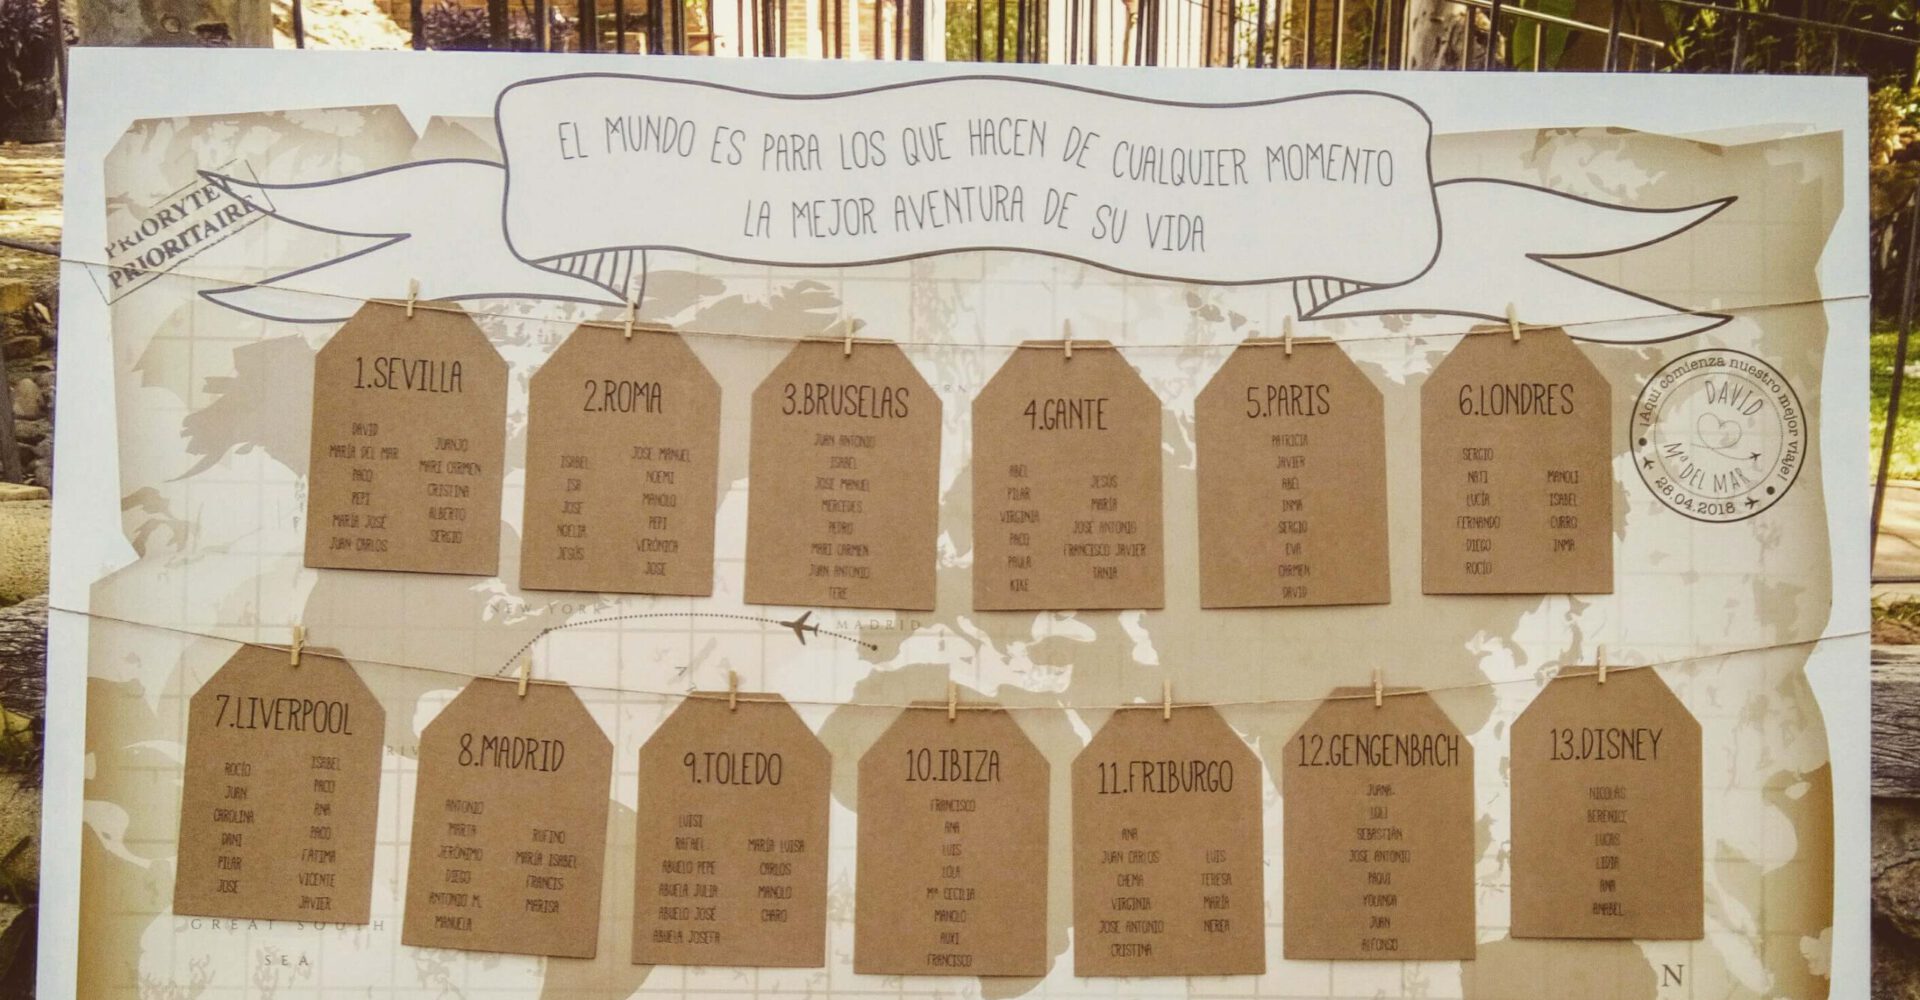 EL MUNDO ES PARA LOS QUE HACEN DE CUALQUIER MOMENTO
LA MEJOR AVENTURA DE SU VIDA
PRIORYTET
PRIORITAIRE
1.SEVILLA
DAVID
MARÍA DEL MAR
PACO
PEPI
MARÍA JOSÉ
JUAN CARLOS
JUANJO
MARI CARMEN
CRISTINA
ALBERTO
SERGIO
2.ROMA
ISABEL
ISA
JOSE
NOELIA
JESÚS
JOSE MANUEL
NOEMI
MANOLO
PEPI
VERÓNICA
JOSE
3.BRUSELAS
JUAN ANTONIO
ISABEL
JOSE MANUEL
MERCEDES
PEDRO
MARI CARMEN
JUAN ANTONIO
TERE
4.GANTE
ABEL
PILAR
VIRGINIA
PACO
PAULA
KIKE
JESÚS
MARÍA
JOSE ANTONIO
FRANCISCO JAVIER
TANIA
5.PARIS
PATRICIA
JAVIER
ABEL
INMA
SERGIO
EVA
CARMEN
DAVID
6.LONDRES
SERGIO
NATI
LUCÍA
FERNANDO
DIEGO
ROCÍO
MANOLI
ISABEL
CURRO
INMA
¡Aquí comienza nuestro mejor viaje!
DAVID
Mª DEL MAR
28.04.2018
NEW YORK
MADRID
7.LIVERPOOL
ROCÍO
JUAN
CAROLINA
DANI
PILAR
JOSE
ISABEL
PACO
ANA
PACO
FATIMA
VICENTE
JAVIER
8.MADRID
ANTONIO
MARTA
JERÓNIMO
DIEGO
ANTONIO M.
MANUELA
RUFINO
MARÍA ISABEL
FRANCIS
MARISA
9.TOLEDO
LUISI
RAFAEL
ABUELO PEPE
ABUELA JULIA
ABUELO JOSÉ
ABUELA JOSEFA
MARÍA LUISA
CARLOS
MANOLO
CHARO
10.IBIZA
FRANCISCO
ANA
LUIS
LOLA
Mª CECILIA
MANOLO
AUXI
FRANCISCO
11.FRIBURGO
ANA
JUAN CARLOS
CHEMA
VIRGINIA
JOSE ANTONIO
CRISTINA
LUIS
TERESA
MARÍA
NEREA
12.GENGENBACH
JUANA
LOLI
SEBASTIÁN
JOSE ANTONIO
PAQUI
YOLANDA
JUAN
ALFONSO
13.DISNEY
NICOLÁS
BERENICE
LUCAS
LIDIA
ANA
ANABEL
GREAT SOUTH
SEA
N